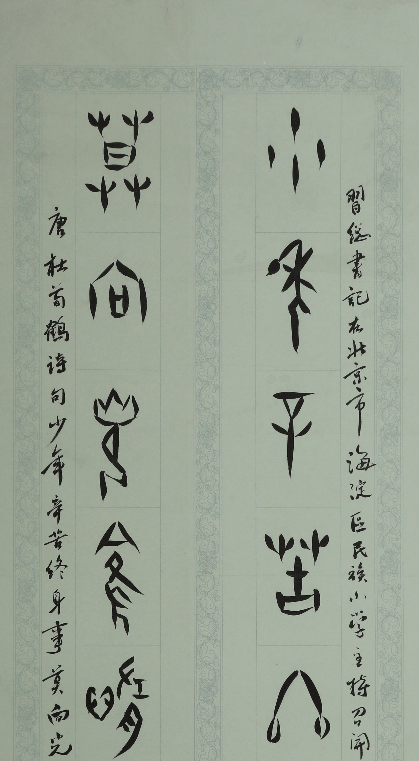 習總書記在北京市海淀区民族小學主持召開
少年辛苦終
莫向光陰惰
唐杜荀鶴詩句少年辛苦終身事莫向光